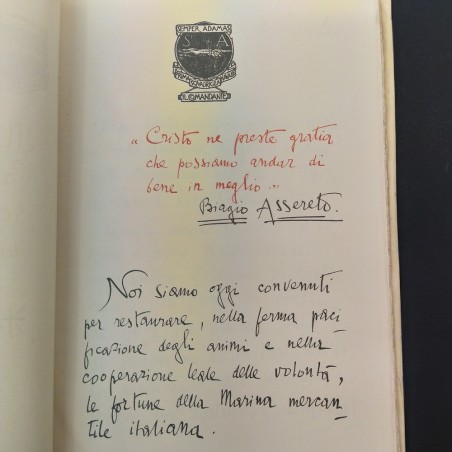 SEMPER ADAMAS
S A
IL COMANDANTE
« Cristo ne preste gratia
che possiamo andar di
bene in meglio...
Biagio Assereto.
Noi siamo oggi convenuti
per restaurare, nella ferma paci
ficazione degli animi e nella
cooperazione leale delle volontà,
le fortune della Marina mercan-
tile italiana.